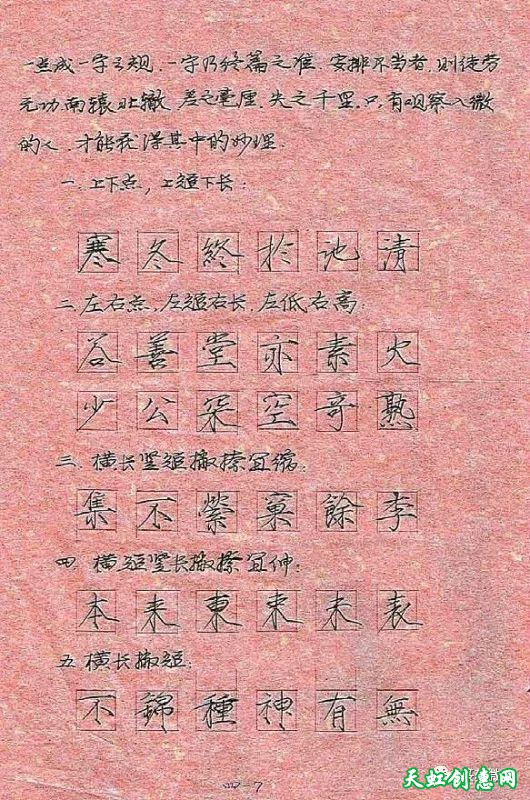 一点成一字之规.一字乃终篇之准.安排不当者,则徒劳
无功而辕北辙.差之毫厘.失之千里.只有观察入微
的人.才能获得其中的妙理.
一.上下点,上短下长:
寒冬終於池清
二.左右点,左短右长,左低右高:
谷善堂亦素火
少公案空奇熟
三.横长竖短撇捺宜缩:
集不縈菓餘李
四.横短竖长撇捺宜伸:
本来東束未表
五.横长撇短:
不錦種神有無
四-7
天虹创意网